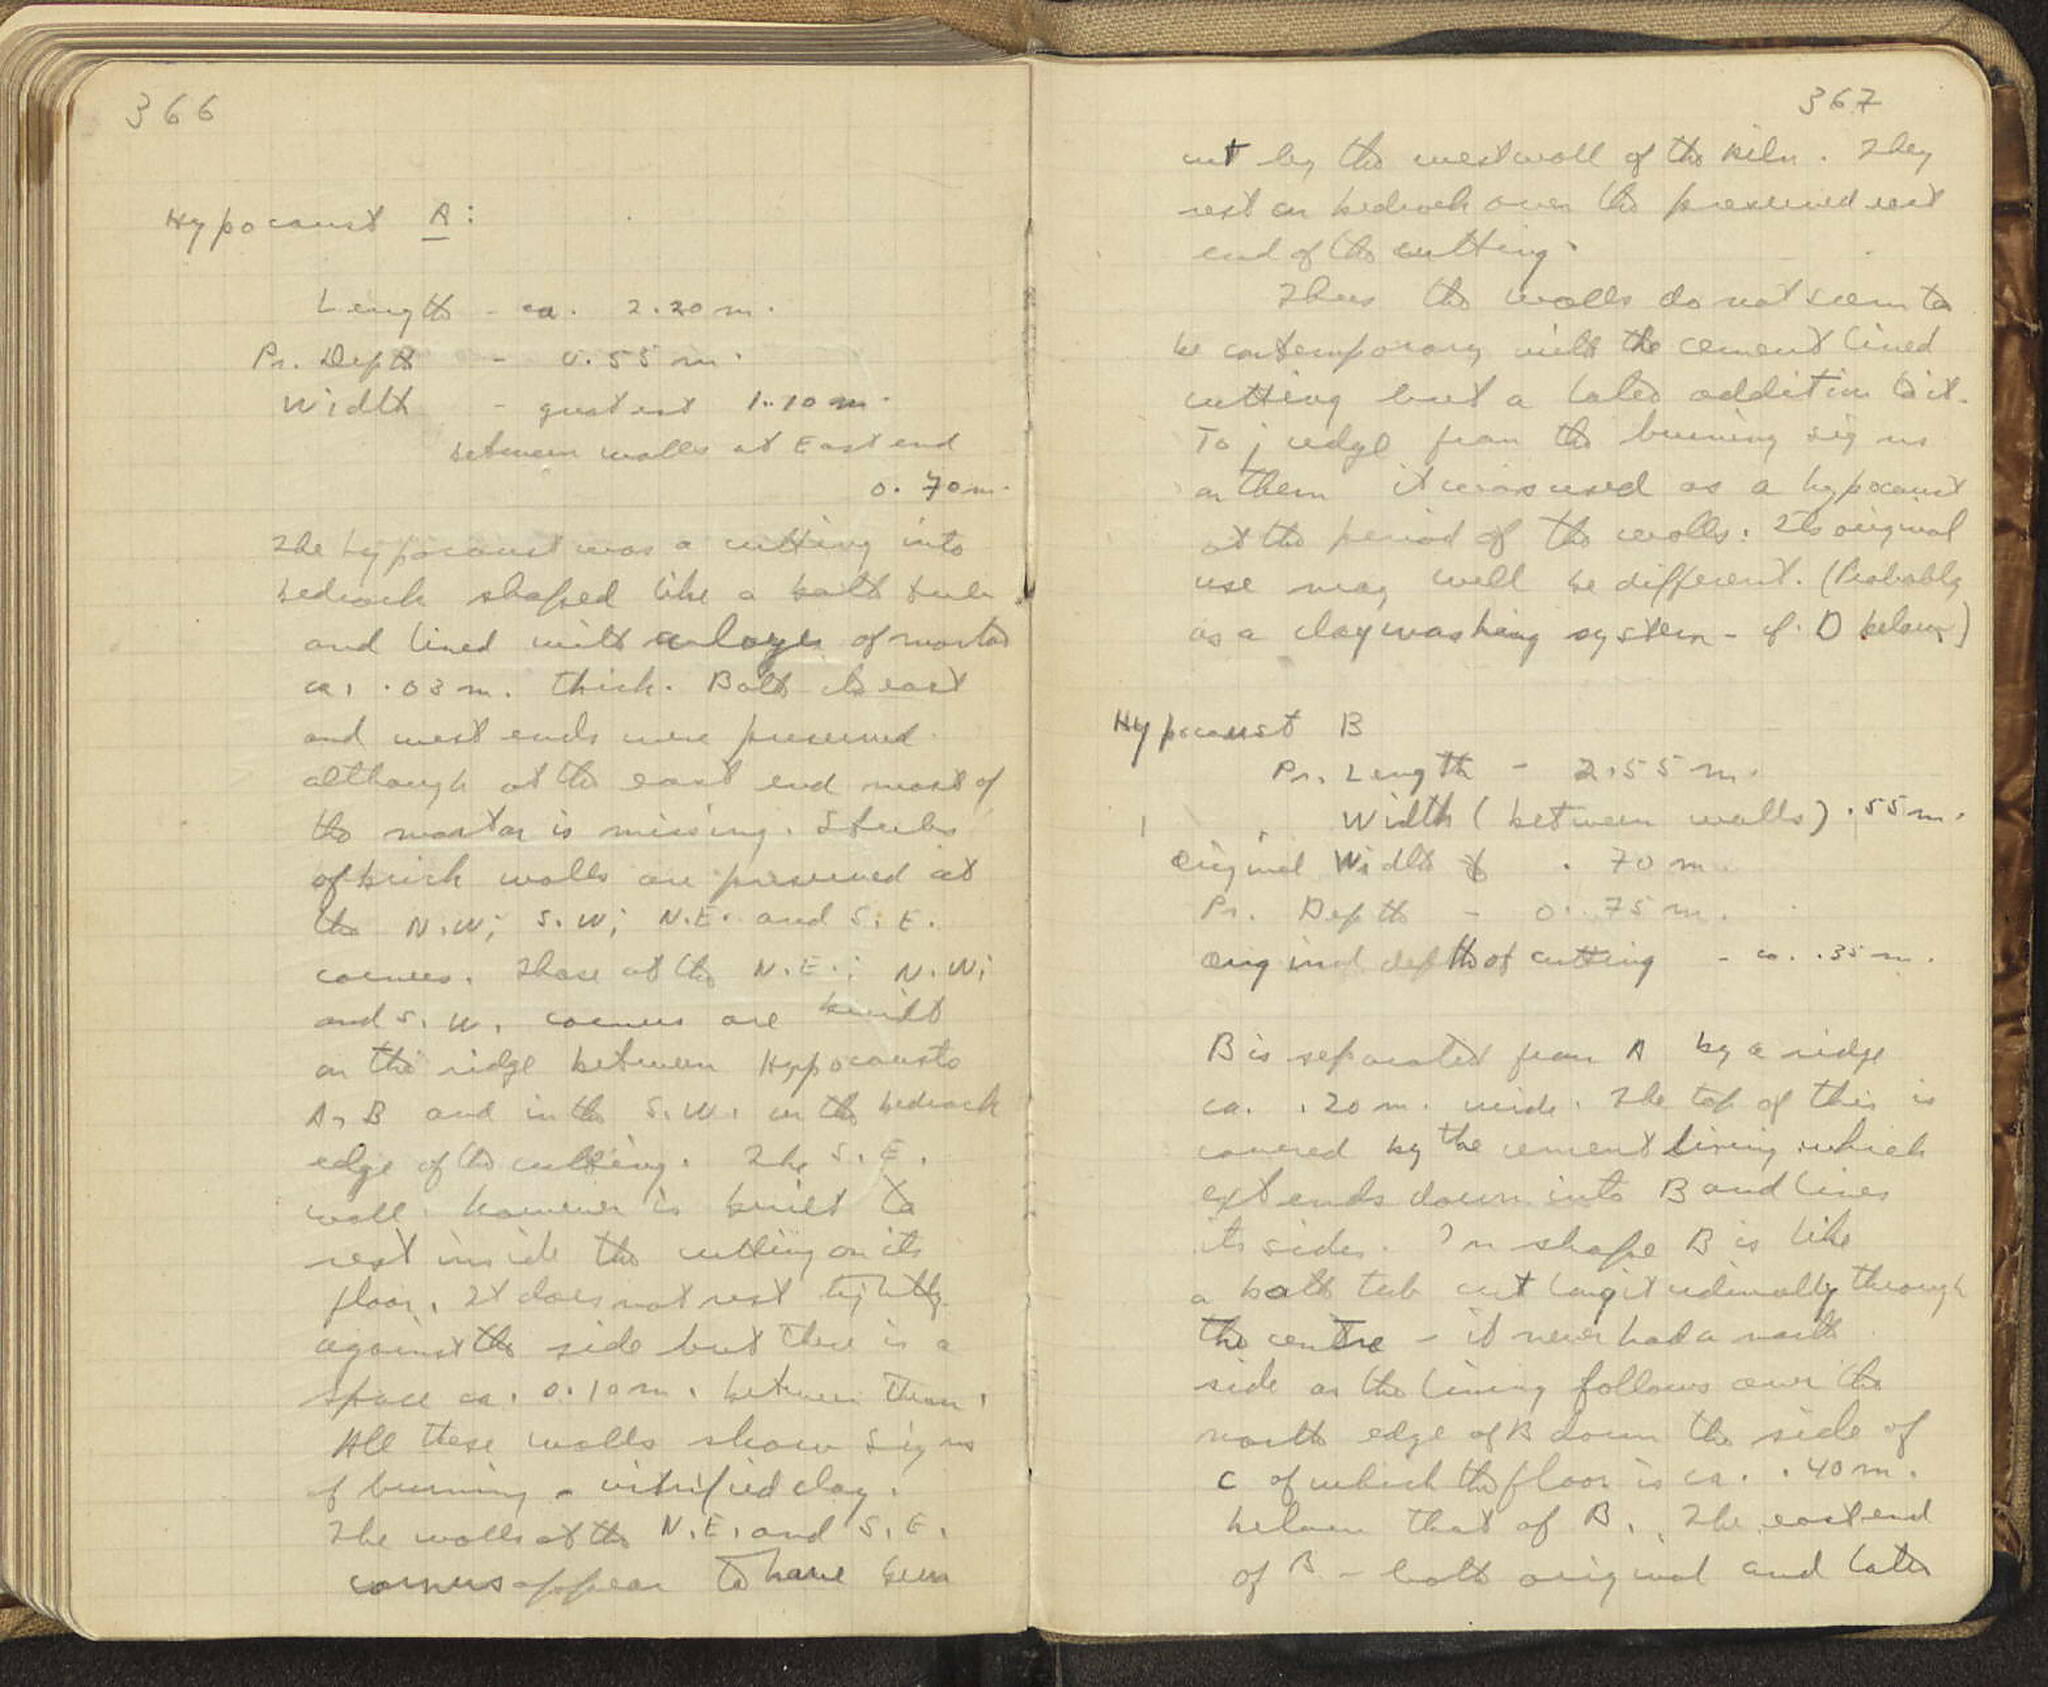 366
Hypocaust A:
Length - ca. 2.20 m.
Pr. Depth - 0.55 m.
Width - greatest 1.10 m.
between walls at East end
0.70 m.
The hypocaust was a cutting into
bedrock shaped like a bath tub
and lined with a layer of mortar
ca. .03 m. thick. Both its east
and west ends were preserved
although at the east end most of
the mortar is missing. Stubs
of brick walls are preserved at
the N.W; S.W; N.E. and S.E.
corners. Those at the N.E.; N.W;
and S.W. corners are built
on the ridge between Hypocausts
A, B and in the S.W. on the bedrock
edge of the cutting. The S.E.
wall however is built to
rest inside the cutting on its
floor. It does not rest tightly
against the side but there is a
space ca. 0.10 m. between them.
All these walls show signs
of burning - vitrified clay.
The walls at the N.E. and S.E.
corners appear to have been
367
cut by the west wall of the kiln. They
rest on bedrock over the preserved east
end of the cutting.
Thus the walls do not seem to
be contemporary with the cement lined
cutting but a later addition to it.
To judge from the burning signs
on them it was used as a hypocaust
at the period of the walls. Its original
use may well be different. (Probably
as a clay washing system - cf. D below)
Hypocaust B
Pr. Length - 2.55 m.
Width (between walls) .55 m.
Original Width .70 m.
Pr. Depth - 0.75 m.
Original depth of cutting - ca. .35 m.
B is separated from A by a ridge
ca. .20 m. wide. The top of this is
covered by the cement lining which
extends down into B and lines
its sides. In shape B is like
a bath tub cut longitudinally through
the centre - it never had a north
side as the lining follows over the
north edge of B down the side of
C of which the floor is ca. .40 m.
below that of B. The east end
of B - both original and later